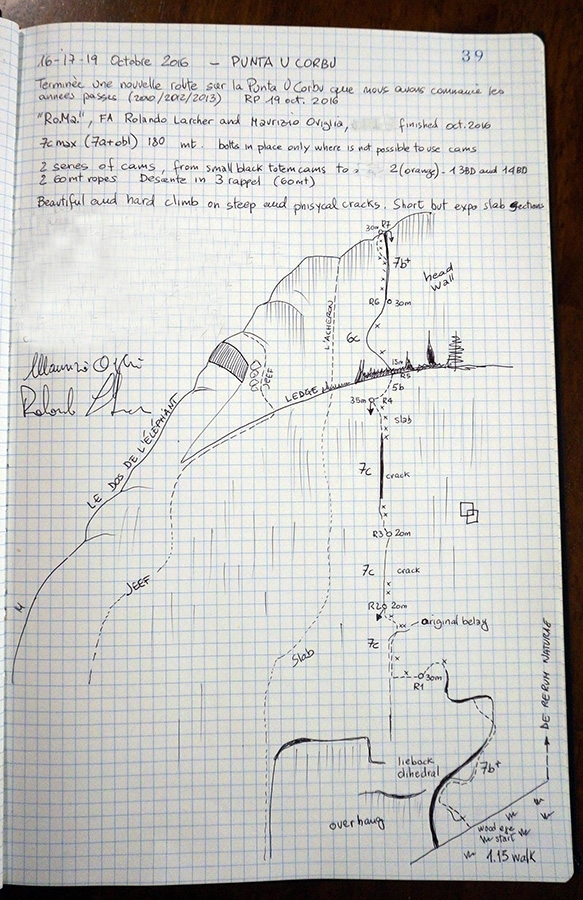 39
16-17-19 Octobre 2016 - PUNTA U CORBU
Terminée une nouvelle route sur la Punta U Corbu que nous avons commencé les
années passes (2010/2012/2013) RP 19 oct. 2016
"RoMa.", FA Rolando Larcher and Maurizio Oviglia, finished oct. 2016
7c max (7a+obl) 180 mt. bolts in place only where is not possible to use cams
2 series of cams, from small black totem cams to 2 (orange) - 1 3BD and 1 4BD
2 60mt ropes Desente in 3 rappel (60mt)
Beautiful and hard climb on steep and phisycal cracks. Short but expo slab sections
30m R7
7b+
head
wall
R6 30m
6c
L'ACHERON
15m
R5
5b
JEEF
LEDGE
35m R4
slab
LE DOS DE L'ÉLÉPHANT
7c crack
R3 20m
7c crack
JEEF
R2 20m
original belay
7c
Slab
30m
R1
DE RERUM NATURAE
lieback
dihedral
7b+
overhang
start
1.15 walk